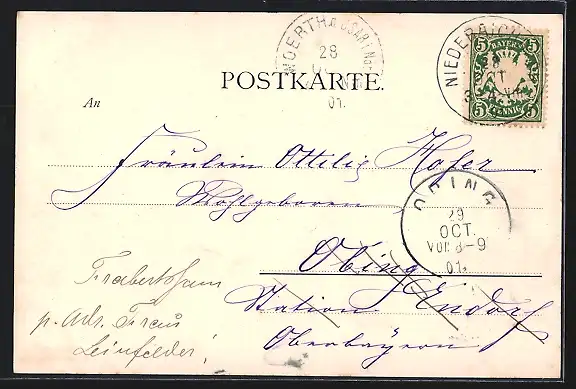 WOERTH
28
01.
NIEDERAICH
5 BAYERN 5
5 PFENNIG 5
POSTKARTE.
An
Fräulein Ottilie Hofer
Wohlgeboren
OBING
29
OCT.
VOR. 8-9
01.
Obing
Station Endorf
Oberbayern
Frabertsham
p. Adr.
Leinfelder!